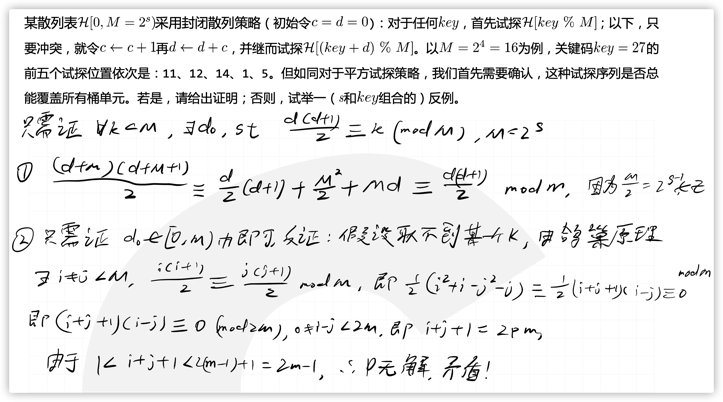 某散列表H[0, M = 2ˢ)采用封闭散列策略（初始令c = d = 0）：对于任何key，首先试探H[key % M]；以下，只
要冲突，就令c ← c + 1再d ← d + c，并继而试探H[(key + d) % M]。以M = 2⁴ = 16为例，关键码key = 27的
前五个试探位置依次是：11、12、14、1、5。但如同对于平方试探策略，我们首先需要确认，这种试探序列是否总
能覆盖所有桶单元。若是，请给出证明；否则，试举一（s和key组合的）反例。
只需证 ∀k<M, ∃d₀, st d(d+1)/2 ≡ k (mod M), M=2ˢ
① (d+m)(d+M+1)/2 ≡ d/2(d+1) + M²/2 + Md ≡ d(d+1)/2 mod m, 因为 M/2 = 2ˢ⁻¹ ∈ Z
② 只需证 d₀∈[0,M)内即可 反证：假设取不到某个K, 由鸽巢原理
∃ i≠j<M, i(i+1)/2 ≡ j(j+1)/2 mod m, 即 ½(i²+i-j²-j) ≡ ½(i+j+1)(i-j) ≡ 0 mod m
即 (i+j+1)(i-j) ≡ 0 (mod 2m), 0≠i-j<2m, 即 i+j+1 = 2pm,
由于 1< i+j+1 <2(m-1)+1 = 2m-1, ∴ P无解, 矛盾!